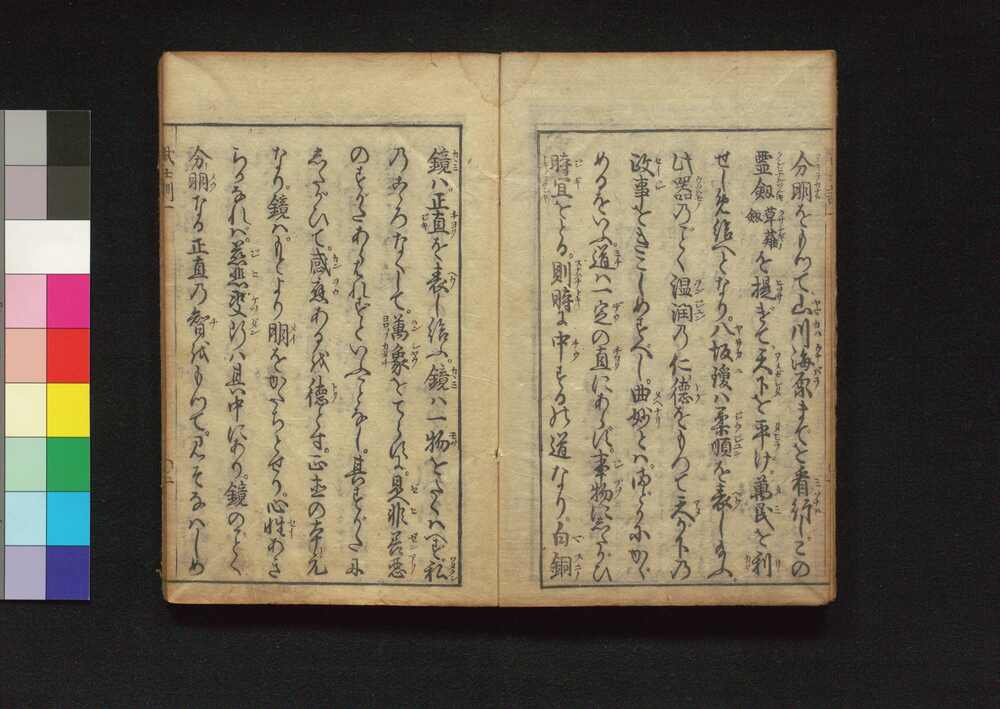 分明をもつて山川海原までを看行しこの
霊剱草薙剱を提ぎて天下を平け萬民を利
せしめ給へとなり八坂瓊ハ柔順を表しまふ
此器のごとく温潤の仁徳をもつて天か下の
政事をきこしめすべし曲妙とハゆがみかゞ
めるをいふ道ハ一定の直にあらず事物にしたがひ
時宜をとる則時に中するの道なり白銅
鏡ハ正直を表し給ふ鏡ハ一物をたくハへず私
のこゝろなくして萬象をてらすに是非善悪
のすがたあらハれずといふことなし其すがたに
したがひて感應あるを徳とす正直の本元
なり鏡ハもとより明をかたちとせり心性あき
らかなれバ慈悲决断ハ其中にあり鏡のごとく
分明なる正直の智をもつて見そなハしめ
武士訓一